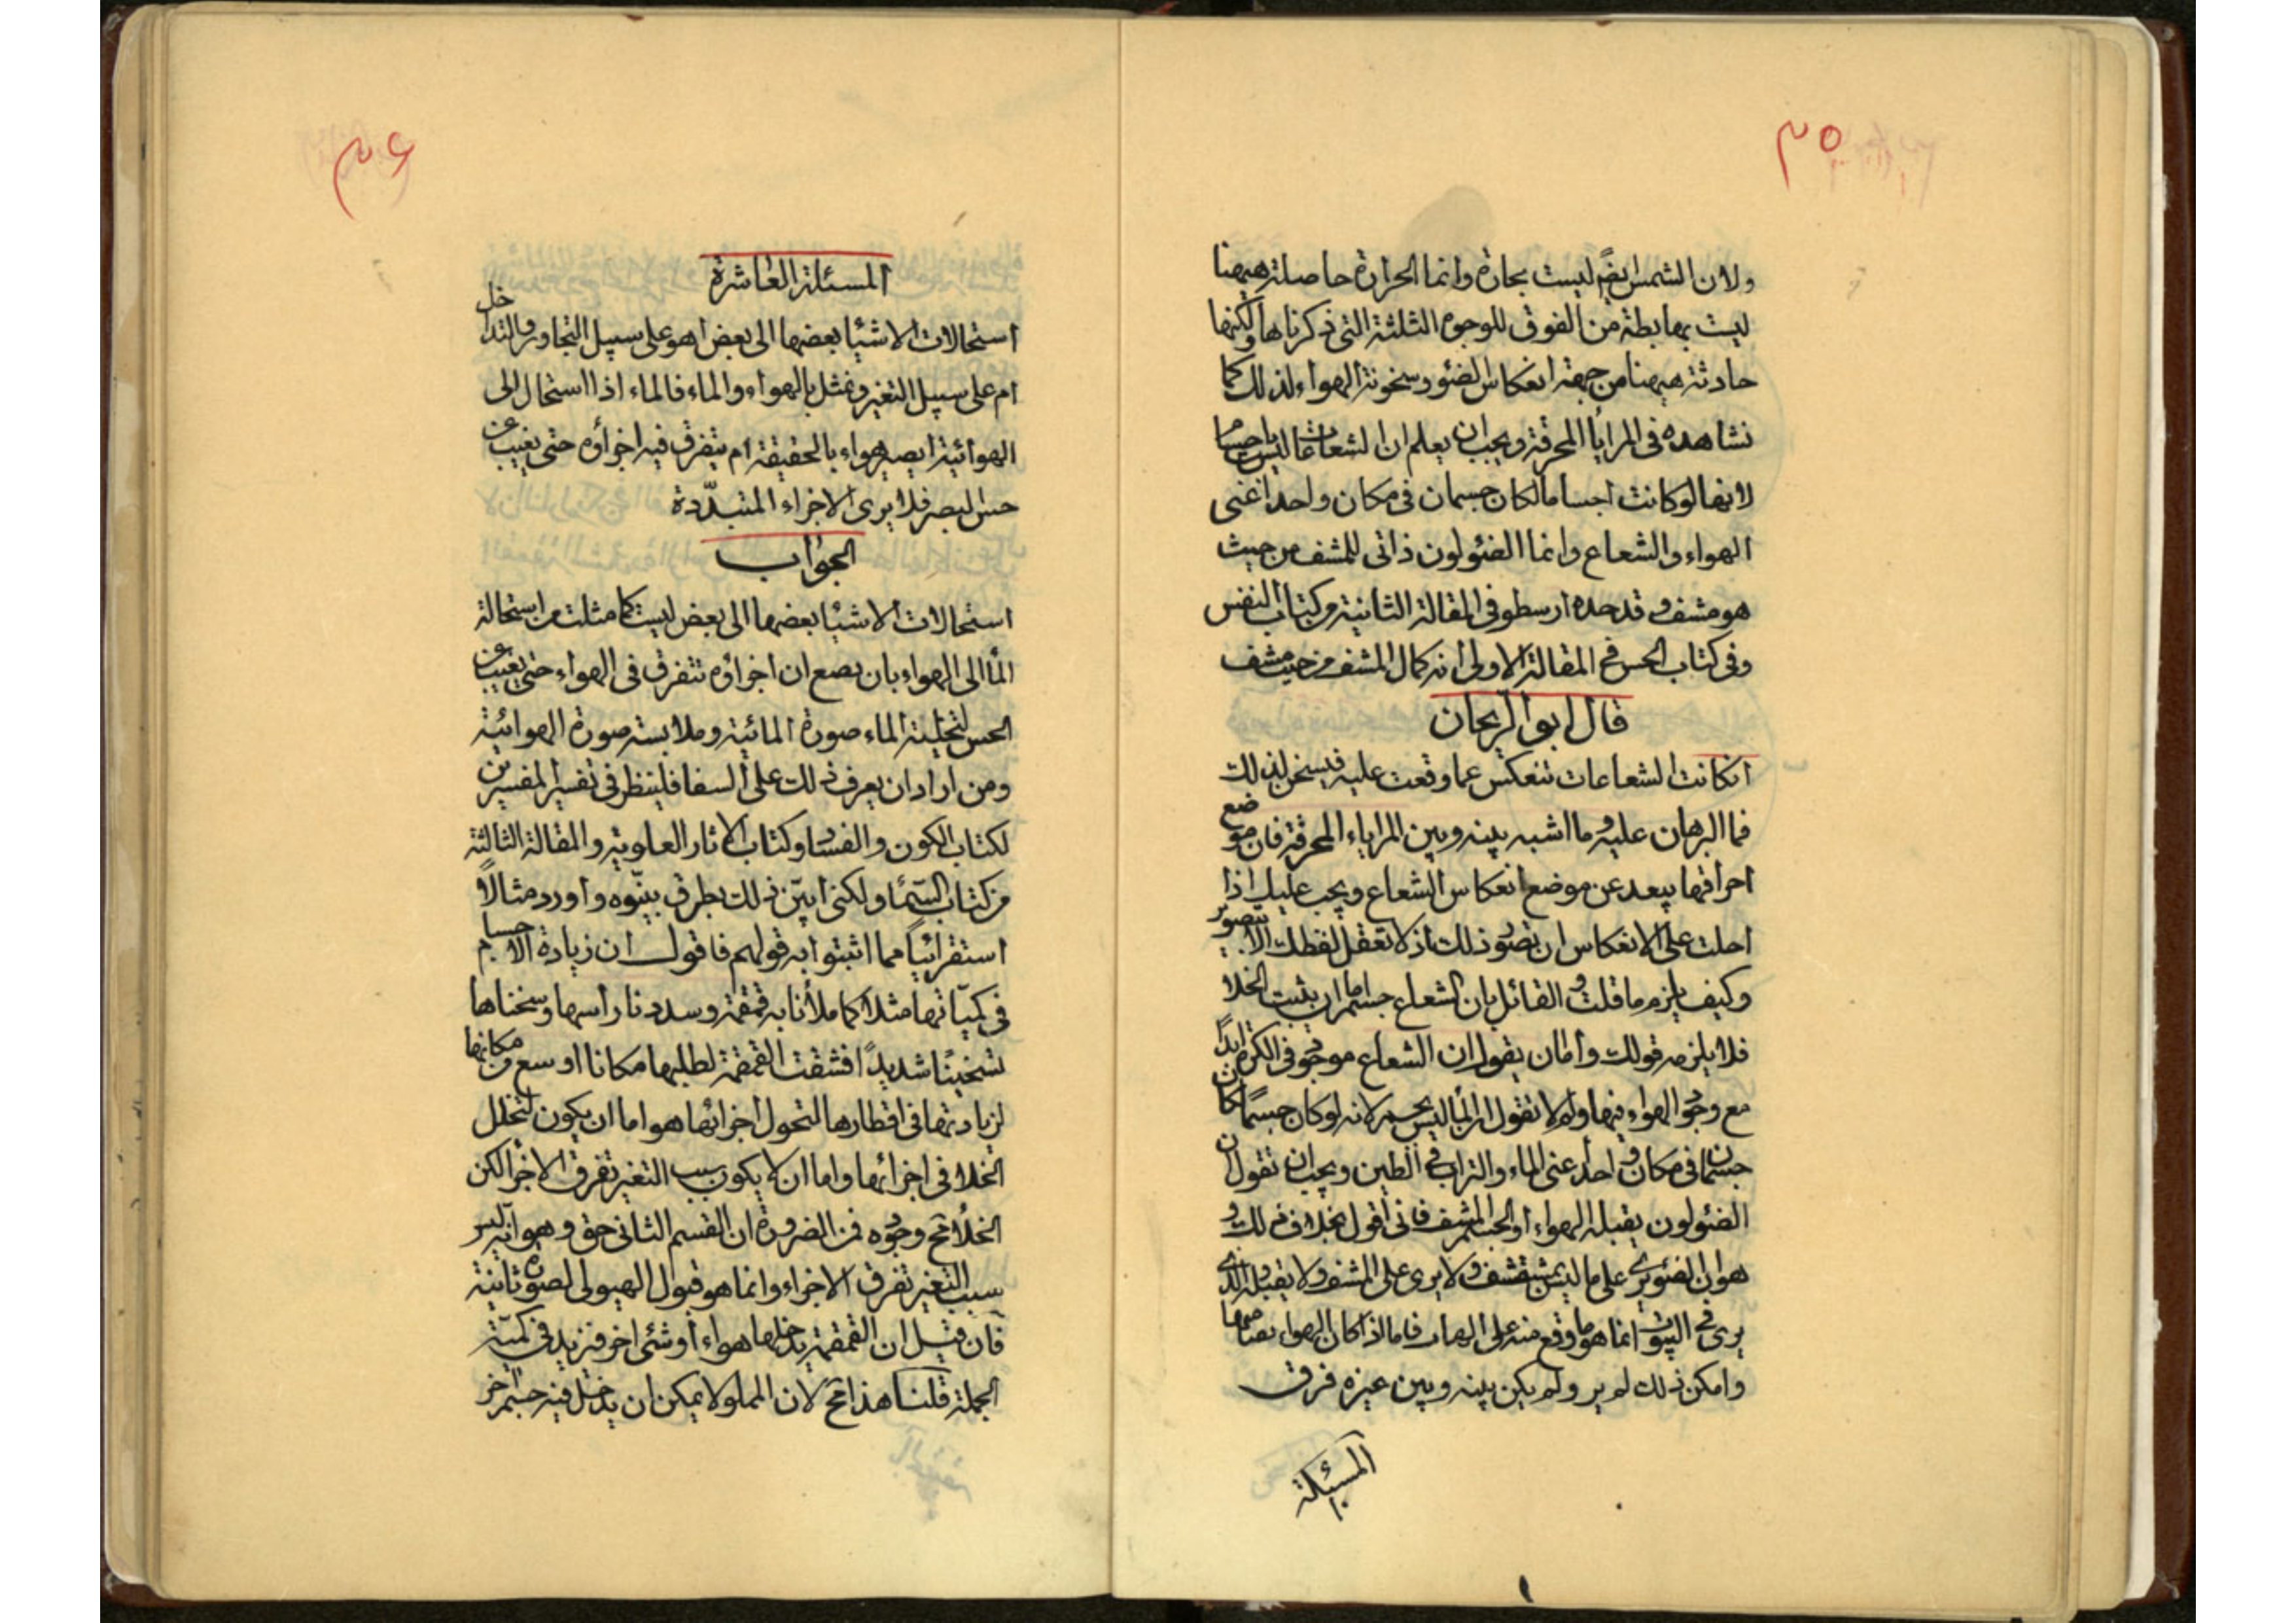 ٣٥
ولان الشمس ايضً ليست بحارة وانما الحرارة حاصلة هيهنا
ليت بهابطة من الفوق للوجوه الثلثة التي ذكرناها ولكنها
حادثة هيهنا من جهة انعكاس الضئو وسخونة الهواء لذلك كما
نشاهده في المرايا المحرقة ويجب ان يعلم ان الشعاعات ليس باجسام
لانها لو كانت اجساما لكان جسمان في مكان واحد اعنى
الهواء والشعاع وانما الضئو لون ذاتى للمشف من حيث
هو مشف وقد حده ارسطو في المقالة الثانية من كتاب النفس
وفي كتاب الحس في المقالة الاولى انه كمال المشف من حيث مشف
قال ابو الريحان
انكانت الشعاعات تنعكس عما وقعت عليه فيسخن لذلك
فما البرهان عليه وما اشبه بينه وبين المراياء المحرقة فان موضع
احراقها يبعد عن موضع انعكاس الشعاع ويجب عليك اذا
احلت على الانعكاس ان تصور ذلك اذ لا تعقل لفظك الا بتصوير
وكيف يلزم ما قلت والقائل بان الشعاع جسم اما ان يثبت الخلا
فلا يلزمه قولك واما ان يقول ان الشعاع موجود في الكرة ابدًا
مع وجود الهواء فيها ولم لا تقول ان الما ليس بجسم لانه لو كان جسمًا لكان
جسمان في مكان واحد اعنى الماء والتراب في الطين ويجب ان تقول ان
الضئو لون يقبله الهواء او الجسم المشف فانى اقول بخلاف ذلك و
هو ان الضئو يرى على ما ليس بمشف ولا يرى على المشف ولا يقبله والذى
يرى في البيوت انما هو ما وقع منه على الهباء فاما اذا كان الهواء نقيا صافيا
وامكن ذلك لم ير ولم يكن بينه وبين غيره فرق
المسئلة
٣۶
المسئلة العاشرة
استحالات الاشيا بعضها الى بعض اهو على سبيل التجاور والتداخل
ام على سبيل التغير ونمثل بالهواء والماء فالماء اذا استحال الى
الهوائية ايصير هواء بالحقيقة ام يتفرق فيه اجزاؤه حتى يغيب عن
حس البصر فلا يرى الاجزاء المتبدّدة
الجواب
استحالات الاشيا بعضها الى بعض ليست كما مثلت من استحالة
الما الى الهواء بان يضع ان اجزاؤه تتفرق في الهواء حتى يغيب عن
الحس لتخلية الماء صورة المائية وملابسته صورة الهوائية
ومن اراد ان يعرف ذلك على السفا فلينظر في تفسير المفسرين
لكتاب الكون والفساد وكتاب الاثار العلوية والمقالة الثالثة
من كتاب السّمأ ولكنى ابيّن ذلك بطرق بينّوه واورد مثالاً
استقرائيًا مما اثبتوا به قولهم فاقول ان زيادة الاجسام
في كميّاتها مثلا كما ملأنا به قمقمة وسددنا رأسها وسخناها
تسخينًا شديدًا فشقت القمقمة لطلبها مكانا اوسع من مكانها
لزيادتها في اقطارها لتحول اجزائها هواء اما ان يكون لتخلل
الخلا في اجزائها واما ان لا يكون سبب التغير تفرق الاجزا لكن
الخلأ مح وجوده فمن الضرورة ان القسم الثانى حق وهو انه ليس
سبب التغير تفرق الاجزاء وانما هو قبول الهيولى لصورة ثانية
فان قيل ان القمقمة يدخلها هواء او شئ اخر فزيد في كميّة
الجملة قلنا هذا مح لان المملو لا يمكن ان يدخل فيه جسم اخر